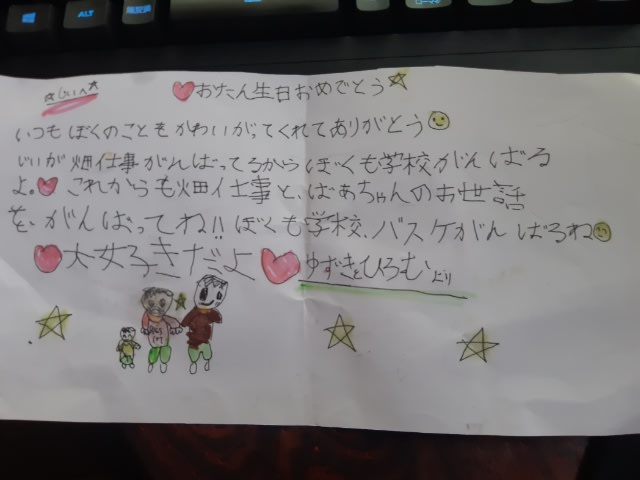 ALT 無変換
じいへ
おたん生日おめでとう
いつもぼくのこともかわいがってくれてありがとう
じいが畑仕事がんばってるからぼくも学校がんばる
よ。これからも畑仕事と、ばあちゃんのお世話
を、がんばってね!!ぼくも学校、バスケがんばるね
大好きだよ ゆずきとひろむより